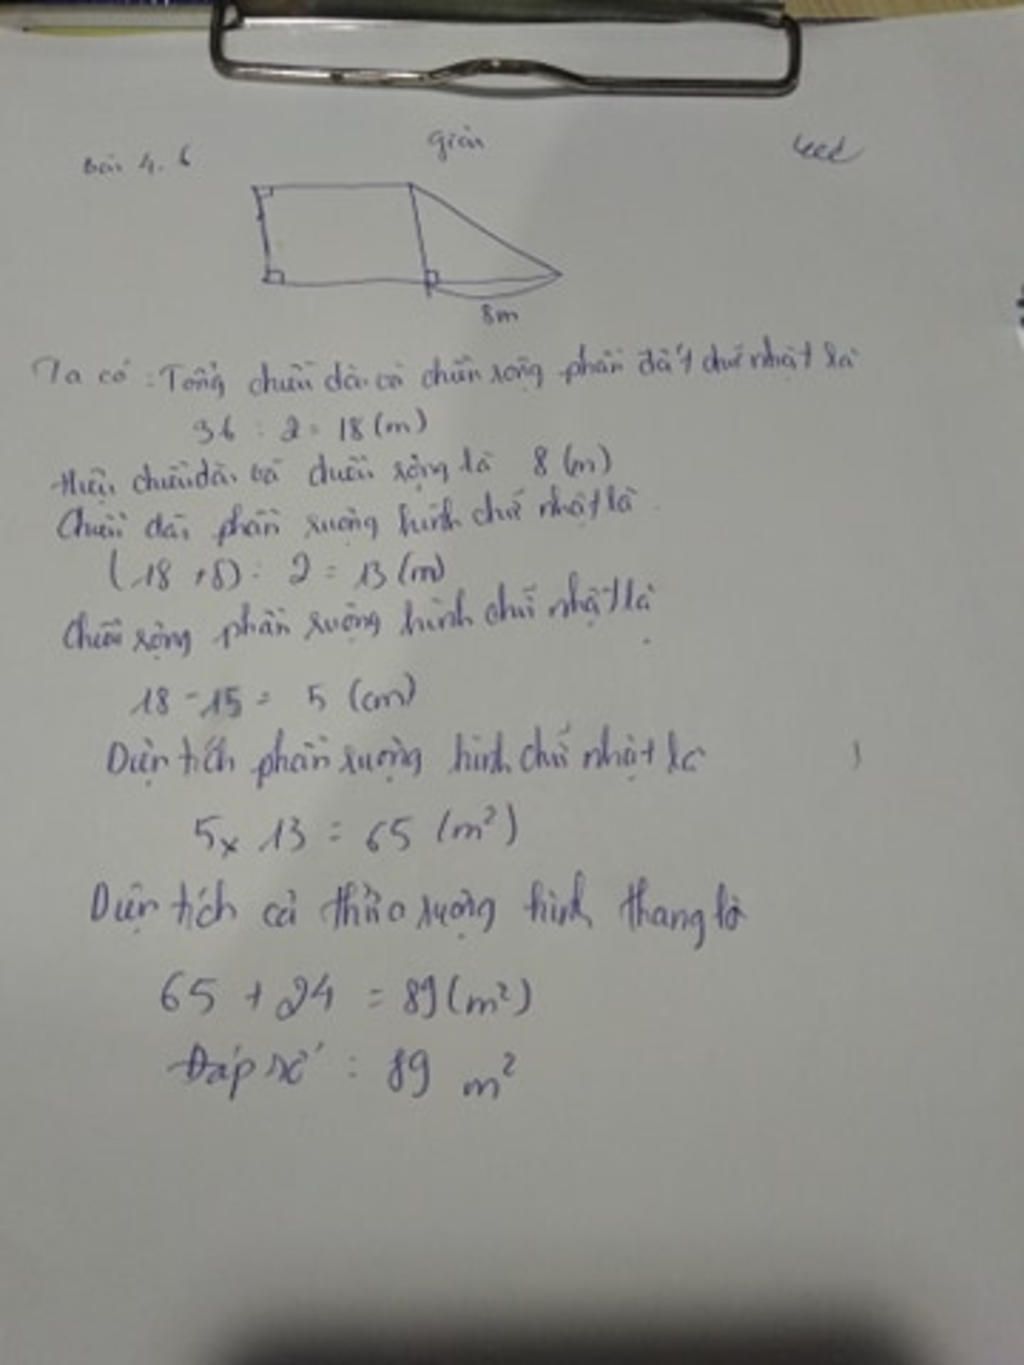 Bài 4.6
giải
8m
Ta có : Tổng chiều dài và chiều rộng phần đất chữ nhật là
36 : 2 = 18 (m)
Hiệu chiều dài và chiều rộng là 8 (m)
Chiều dài phần ruộng hình chữ nhật là
(18 + 8) : 2 = 13 (m)
Chiều rộng phần ruộng hình chữ nhật là
18 - 15 = 5 (cm)
Diện tích phần ruộng hình chữ nhật là
5 x 13 = 65 (m²)
Diện tích cả thửa ruộng hình thang là
65 + 24 = 89 (m²)
Đáp số : 89 m²